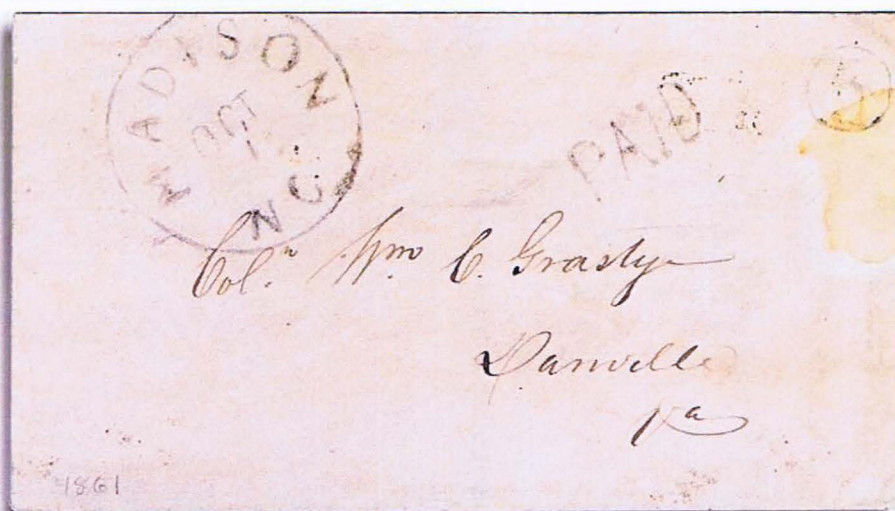 MADISON
OCT
1
NC
PAID
Col.ⁿ Wm C. Grasty
Danville
Va
1861